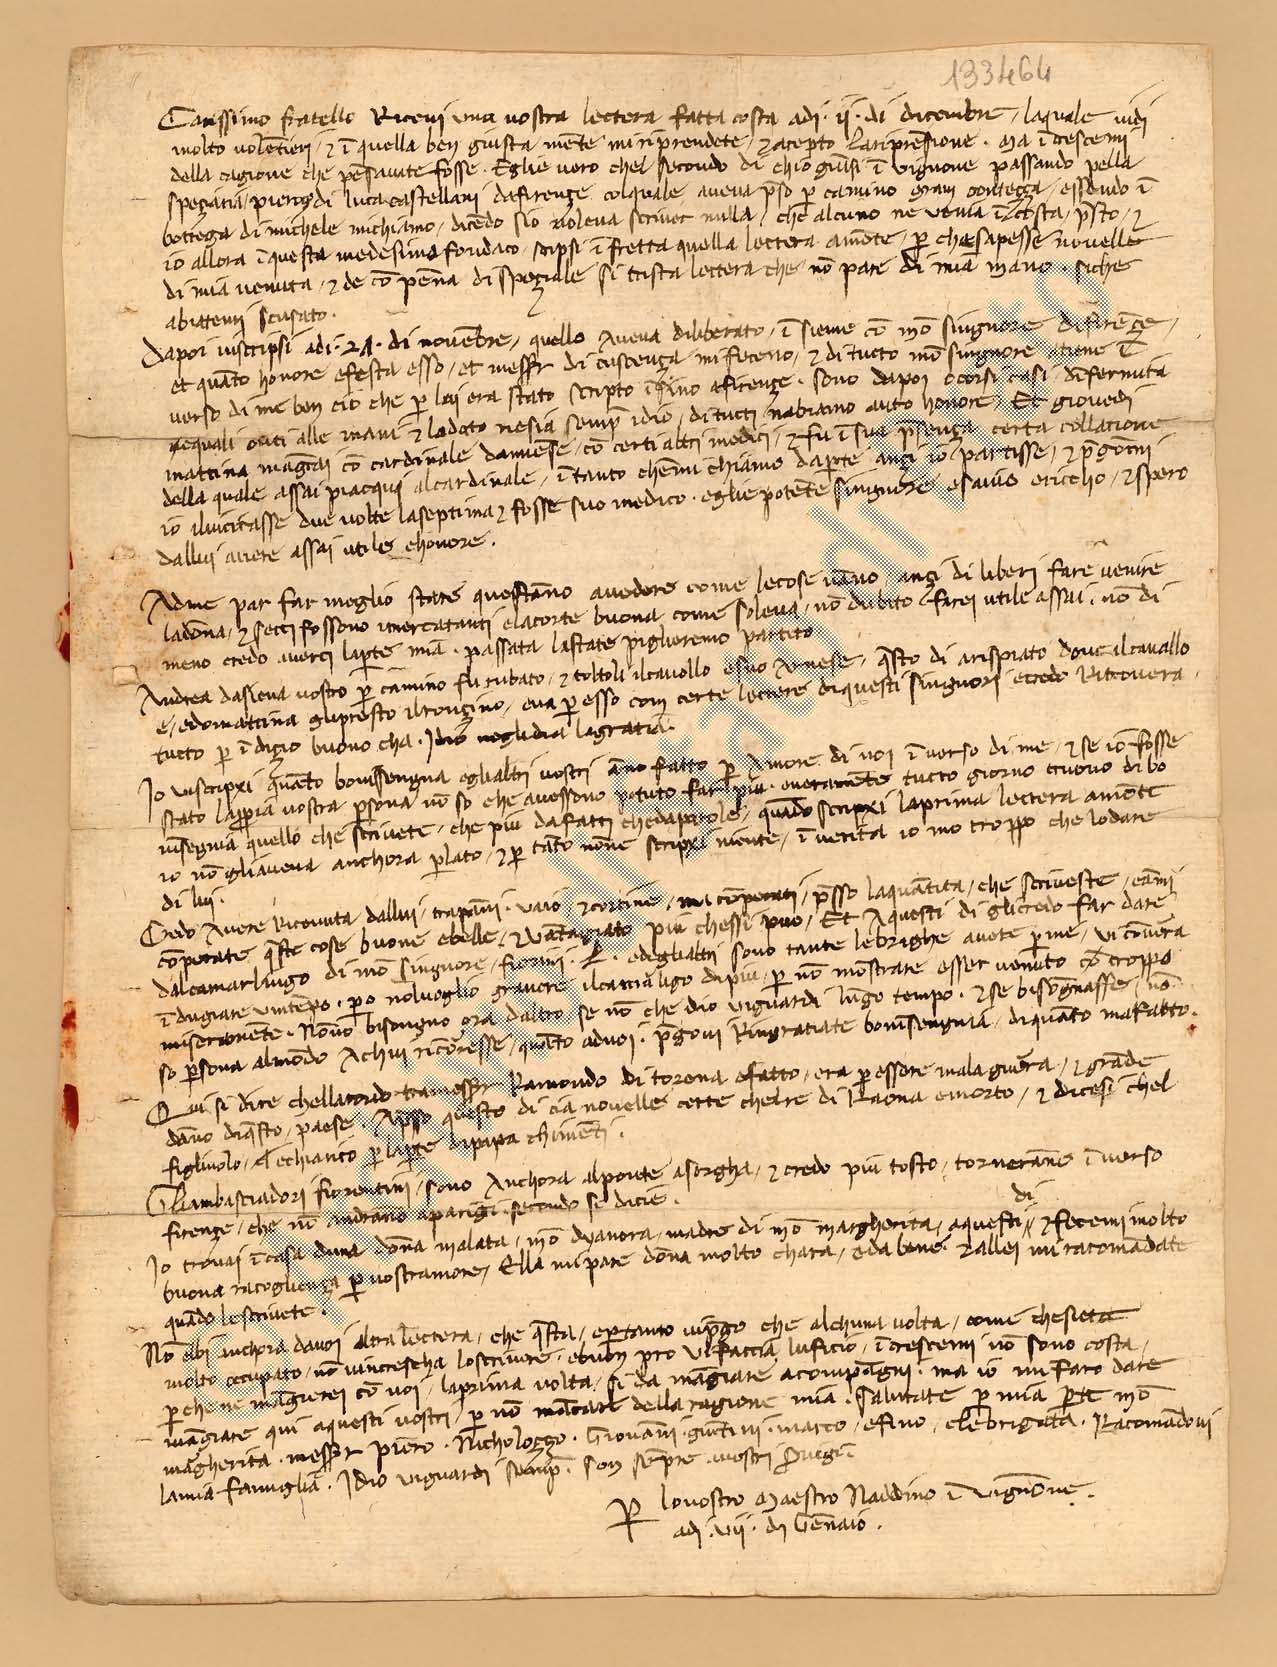 133464
Carissimo fratello Ricevi una vostra lectera fatta costa adi · ij · di dicembre / laquale vidi
molto volẽtieri / ⁊ ĩ quella ben giusta mẽte mi riprendete / ⁊ acepto laripresione · Ma ĩcrescemi
della cagione che pẽsavate fosse · Eglie vero chel secondo di chio giũsi ĩ vignone passando pella
speziaria / piero di luca castellani dafirenze colquale aveva pͬso p camino gram contezza / essendo ĩ
bottega di michele michiamo / dicẽdo sio voleva scriver nulla / che alcuno ne venia ĩ costa / pͬsto / ⁊
io allora ĩ questa medesimo fondaco / scripsi ĩ fretta quella lectera amõte / p che sapesse novelle
di mia venuta / ⁊ de cõ pẽna di speziale si trista lectera che nõ pare di mia mano · siche
abiatemi scusato ·
Dapoi viscripsi adi · 24 · di novẽbre / quello aveva diliberato / ĩ sieme cõ mõ singnore difirẽze /
et quãto honore efesta esso / et messer di cuscenza mi fecero / ⁊ di tucto mõ singnore atiene ĩ
verso di me ben cio che p lui era stato scripto ĩsino afirenze · sono dapoi ocorsi casi dĩfermita
aequali oñti alle mani ⁊ lodato nesia semp idio / di tucti nabiamo auto honore / Et giovedi
mattina mãgiai cõ cardinale damiẽse / cõ certi altri medici / ⁊ fu ĩ sua pͬsenza certa collatione
della quale assai piacqui alcardinale / ĩ tanto chemi chiamo daparte anzi io partisse / ⁊ pͬgomi
io ilvicitasse due volte laseptima ⁊ fosse suo medico · eglie potẽte singnore esavio ericcho / ⁊ spero
dallui avere assai utile ehonore ·
Adme par far meglio stare questãno avedere come lecose vãno / anzi di liberi fare venire
ladõna / ⁊ secci fossono imercatanti elacorte buona come soleva / nõ dubito cifarei utile assai · nõ di
meno credo averci laparte mia · passata lastate piglieremo partito
Andrea dasiena vostro p camino fu rubato / ⁊ toltoli ilcavallo esuo arnese / qͣsto di arispiato dove ilcavallo
e / edomattina glipresto ilronzino / eva p esso com certe lectere diquesti singnori ecredo Ritrovera
tucto p ĩdizio buono cha · Idio neglidia lagratia ·
Io viscripxi quãto bonĩsengna eglialtri vostri ãno fatto p Amore di voi ĩ verso di me / ⁊ se io fosse
stato lappia vostra psona nõ so che avessono potuto far piu · overamẽte tucto giorno truovo di bo
nĩsegnia quello che scrivete / che piu dafatti chedaparole / quãdo scripxi laprima lectera amõte
io nõ gliaveva anchora plato / ⁊ p tãto nõne scripxi niente / ĩ verita io mo troppo che lodare
di lui ·
Credo Avere Ricevuta dallui / trapãni · vaio / ⁊ cortine / pͬsso laquãtita / che scriveste / eãmi
cõperate qͣste cose buone ebelle / ⁊ vãtagiato piu chessi puo / Et Aquesti di glicredo far dare
dalcamarlingo di mõ singnore / fiorini · L · edeglialtri sono tante lebrighe avete pme / vi cõverra
ĩdugiare untẽpo · po nolvoglio gravare dipiu / p nõ mostrare esser venuto cõ troppo
miseramẽte · Nonõ bisongno ora daltro se nõ che dio viguardi lũgo tempo · ⁊ se bisõgnasse / nõ
so psona almõdo Achui ricoresse / quãto advoi · pͬgovi Ringratiate bonĩsengnia / diquãto mafatto ·
Qui si dice chellacordo tramesser Ramondo di torena efatto / era p essere mala guerra / ⁊ grãde
dãno diqͣsto / paese · Apͬsso questo di cia novelle certe chelre di Raona emorto / ⁊ dicesi chel
figliuolo / echiarito p laparte dipapa chimẽti ·
Gliambasciadori fiorentini / sono Anchora alponte asorgha / ⁊ credo piu tosto / tornerãno ĩ verso
firenze / che nõ andrano aparigi · secondo si dicie ·
Io trovai ĩ casa duna dõna malata / mõ dianora / madre di mõ margherita / aquesti di / ⁊ fecemi molto
buona racoglienza p vostramore / Ella mi pare dõna molto chara / edabene ⁊ allei mi racomãdate
quãdo lescrivete ·
Nõ ebbi anchora davoi altra lectera / che qͣsta / eptanto vipͬgo che alchuna volta / come chesiete
molto occupato / nõ vincrescha loscrivere · ebuon pro vi faccia lufficio / ĩcrescemi nõ sono costa /
p che ne mãgierei cõ voi / laprima volta / si da mãgiare acompãgni · ma io mi faro dare
mãgiare qui aquesti vostri / p nõ mãcare della ragione mia · salutate p mia pte mõ
margherita · messer piero · Nicholozzo · Giovãni · giũtini · marco / efino / elebrigata · Racomãdovi
lamia famiglia · Idio viguardi semp · son sẽpre vostri
P lovostro Maestro Naddino ĩ vignõne ·
adi · vij · di Gẽnaio ·